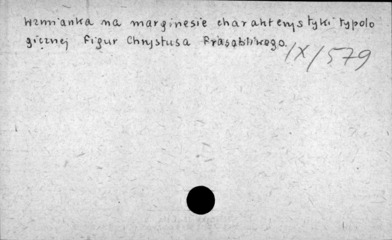 Wzmianka na marginesie charakterystyki typolo
gicznej figur Chrystusa Frasobliwego
/X/579